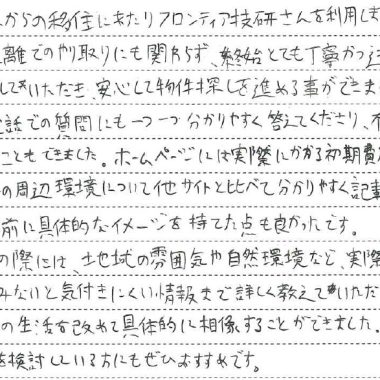 からの移住にあたりフロンティア技研さんを利用しま
離でのやり取りにも関わらず、終始とても丁寧かつ迅
していただき、安心して物件探しを進める事ができま
話での質問にも一つ一つ分かりやすく答えてくださり、不
こともできました。ホームページには実際にかかる初期費
の周辺環境について他サイトと比べて分かりやすく記載
前に具体的なイメージを持てた点も良かったです。
の際には、土地域の雰囲気や自然環境など、実際
みないと気付きにくい情報まで詳しく教えていただ
の生活を改めて具体的に想像することができました。
を検討している方にもぜひおすすめです。